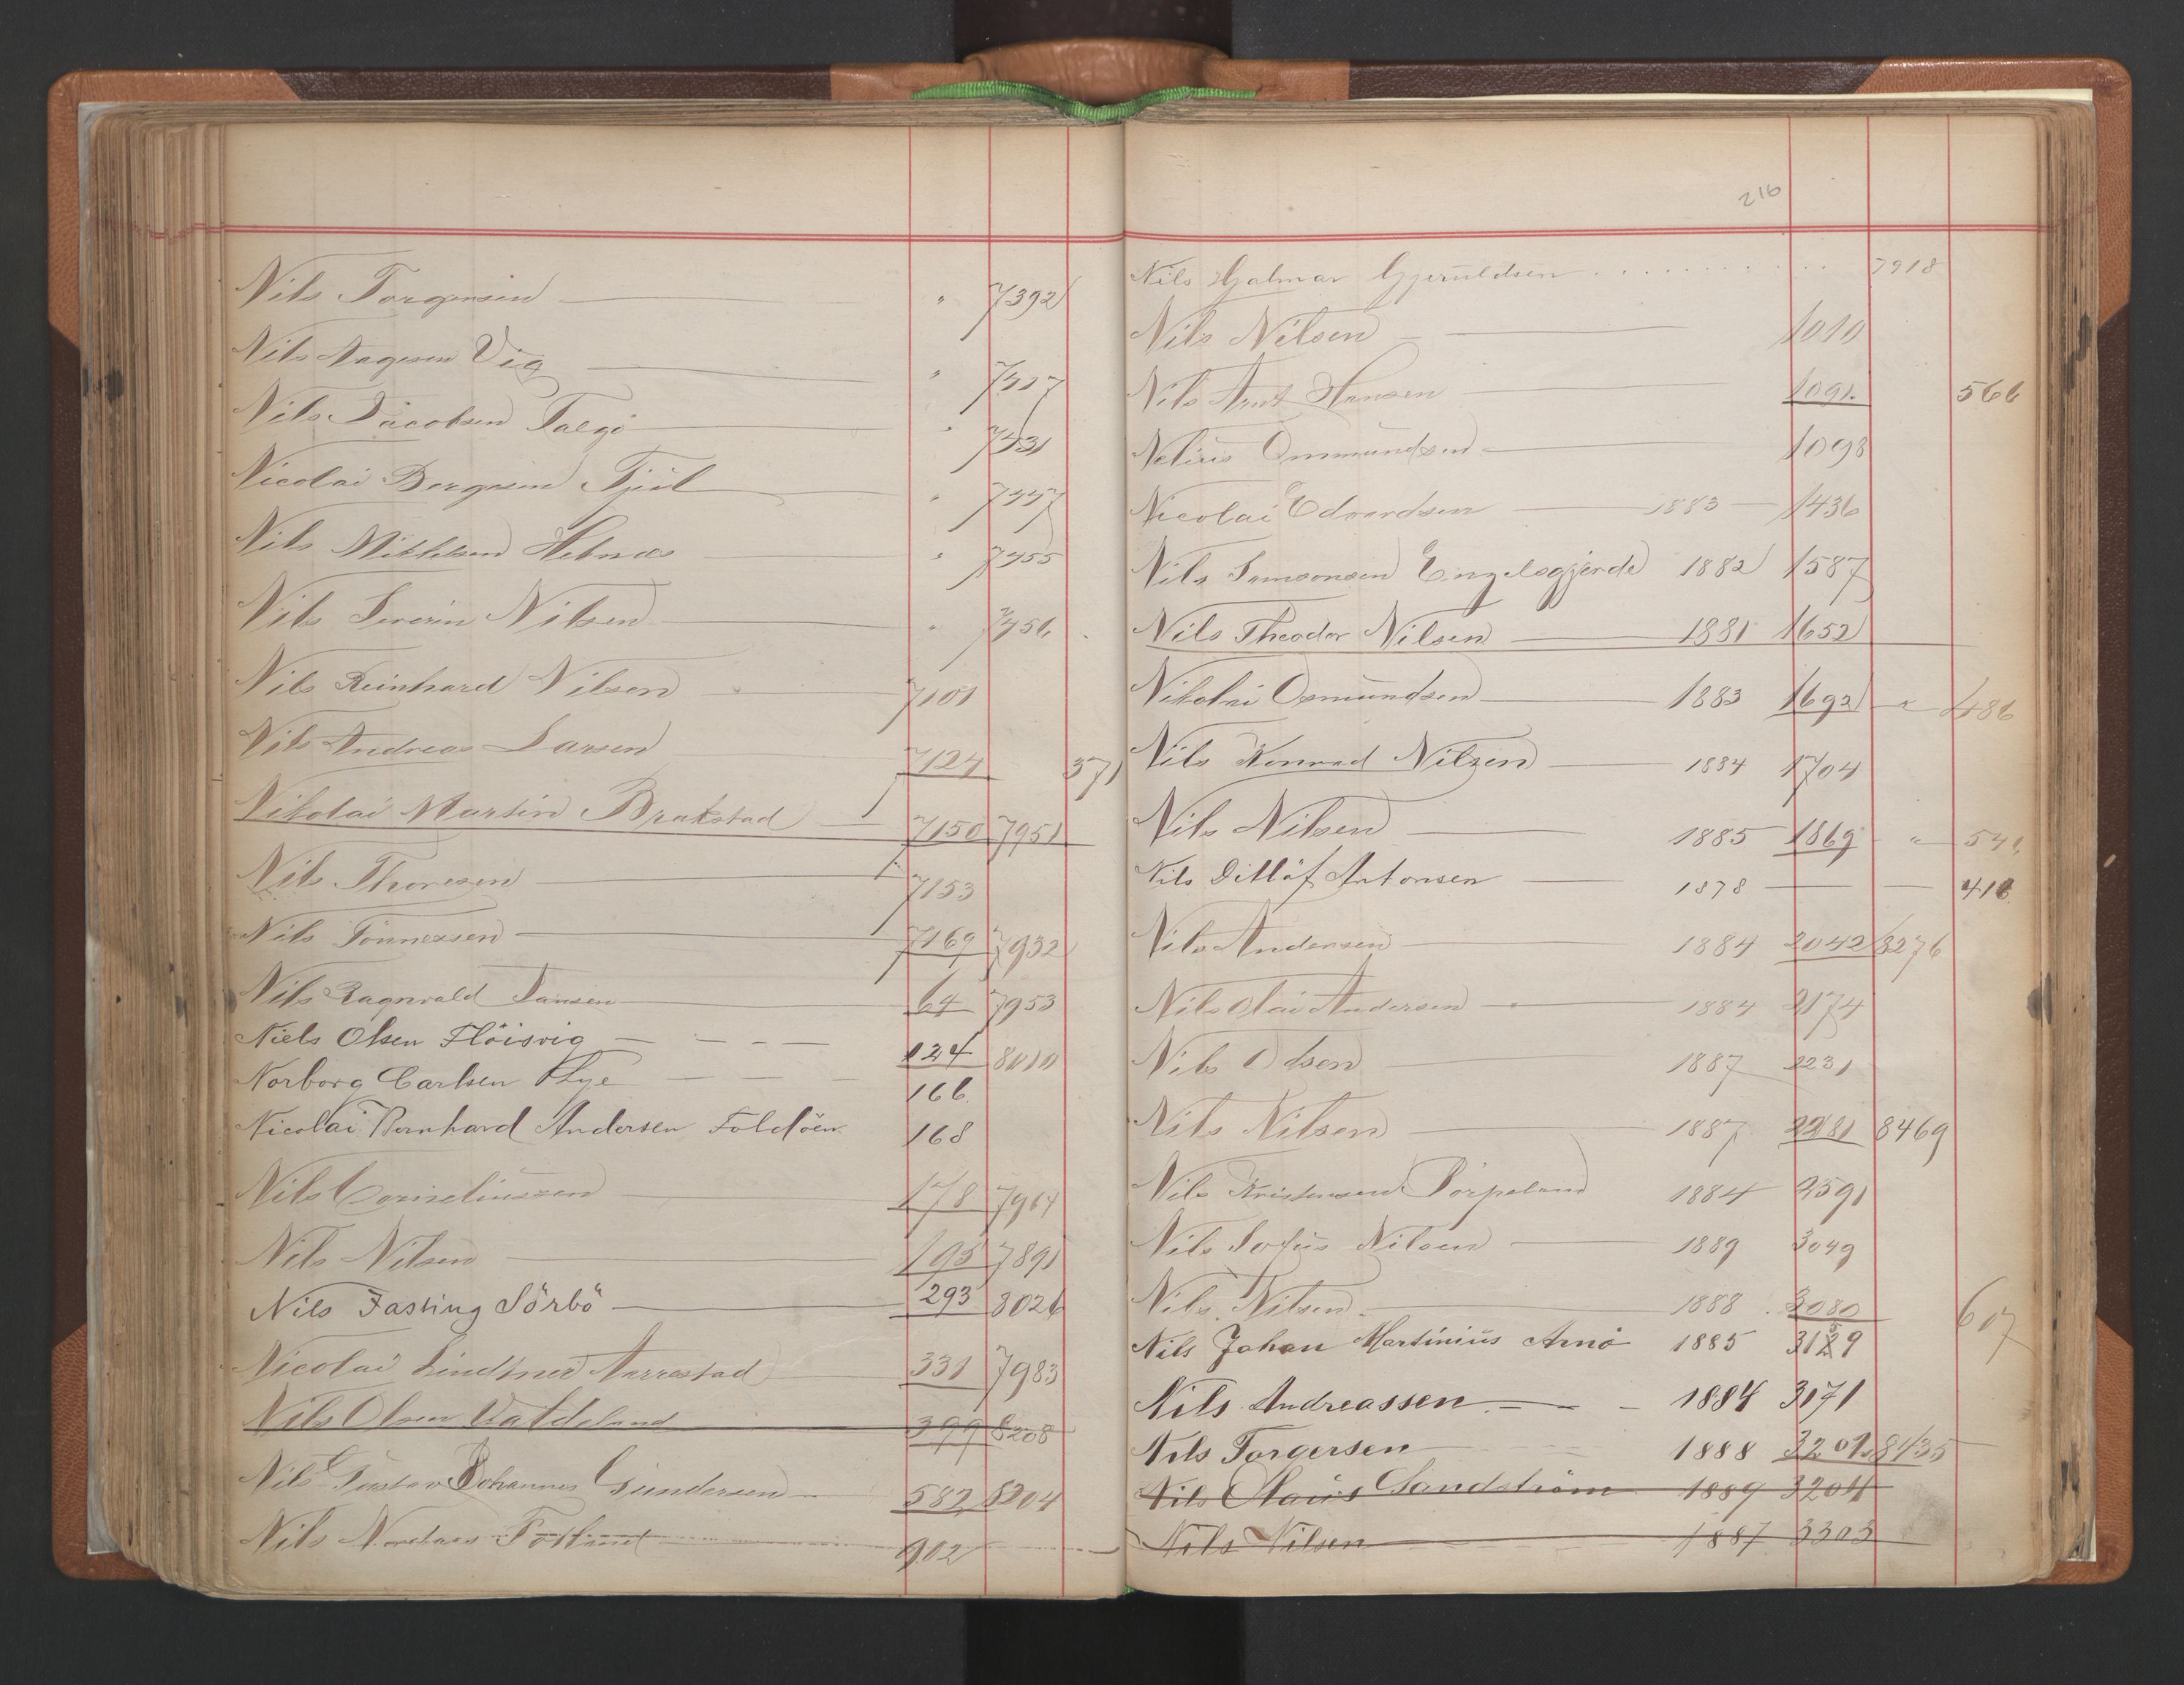 Nils Torgersen " 7392
Nils Aagesen Vig " 7417
Nils Jacobsen Talgö " 7431
Nicolai Bergesen Tjöl " 7447
Nils Mikkelsen Helnæs " 7455
Nils Severin Nilsen " 7456
Nils Reinhard Nilsen 7101
Nils Andreas Larsen 7124 371
Nikolai Martin Brakstad 7150 7951
Nils Thoresen 7153
Nils Tönnessen 7169 7932
Nils Ragnvald Jansen 64 7953
Niels Olsen Flöisvig 124 8010
Norborg Carlsen Rye 166.
Nicolai Bernhard Andersen Foldöen 168
Nils Corneliussen 178 7964
Nils Nilsen 195 7891
Nils Fasting Sörbö 293 8026
Nicolai Lindtner Aarrestad 331 7983
Nils Olsen Vatdeland 399 8208
Nils Gustav Johannes Gundersen 582 8204
Nils Totland 902
216
Nils Hjalmar Gjeruldsen 7918
Nils Nilsen 1010
Nils Arnt Hansen 1091. 566
Nelius Ommundsen 1098
Nicolai Edvardsen 1883 1436
Nils Samsonsen Engelsgjerde 1882 1587
Nils Theodor Nilsen 1881 1652
Nikolai Osmundsen 1883 1692 " 486
Nils Konrad Nilsen 1884 1704
Nils Nilsen 1885 1869 " 541
Nils Ditlöf Antonsen 1878 416
Nils Andersen 1884 2042 8276
Nils Olai Andersen 1884 2174
Nils Olsen 1887 2231
Nils Nilsen 1887 2281 8469
Nils Kristensen Jörpeland 1884 2591
Nils Sofus Nilsen 1889 3049
Nils Nilsen 1888 3080 607
Nils Johan Martinius Arnö 1885 3129
Nils Andreassen 1884 3171
Nils Torgersen 1888 3201 8435
Nils Claus Sandström 1889 3204
Nils Nilsen 1887 3303